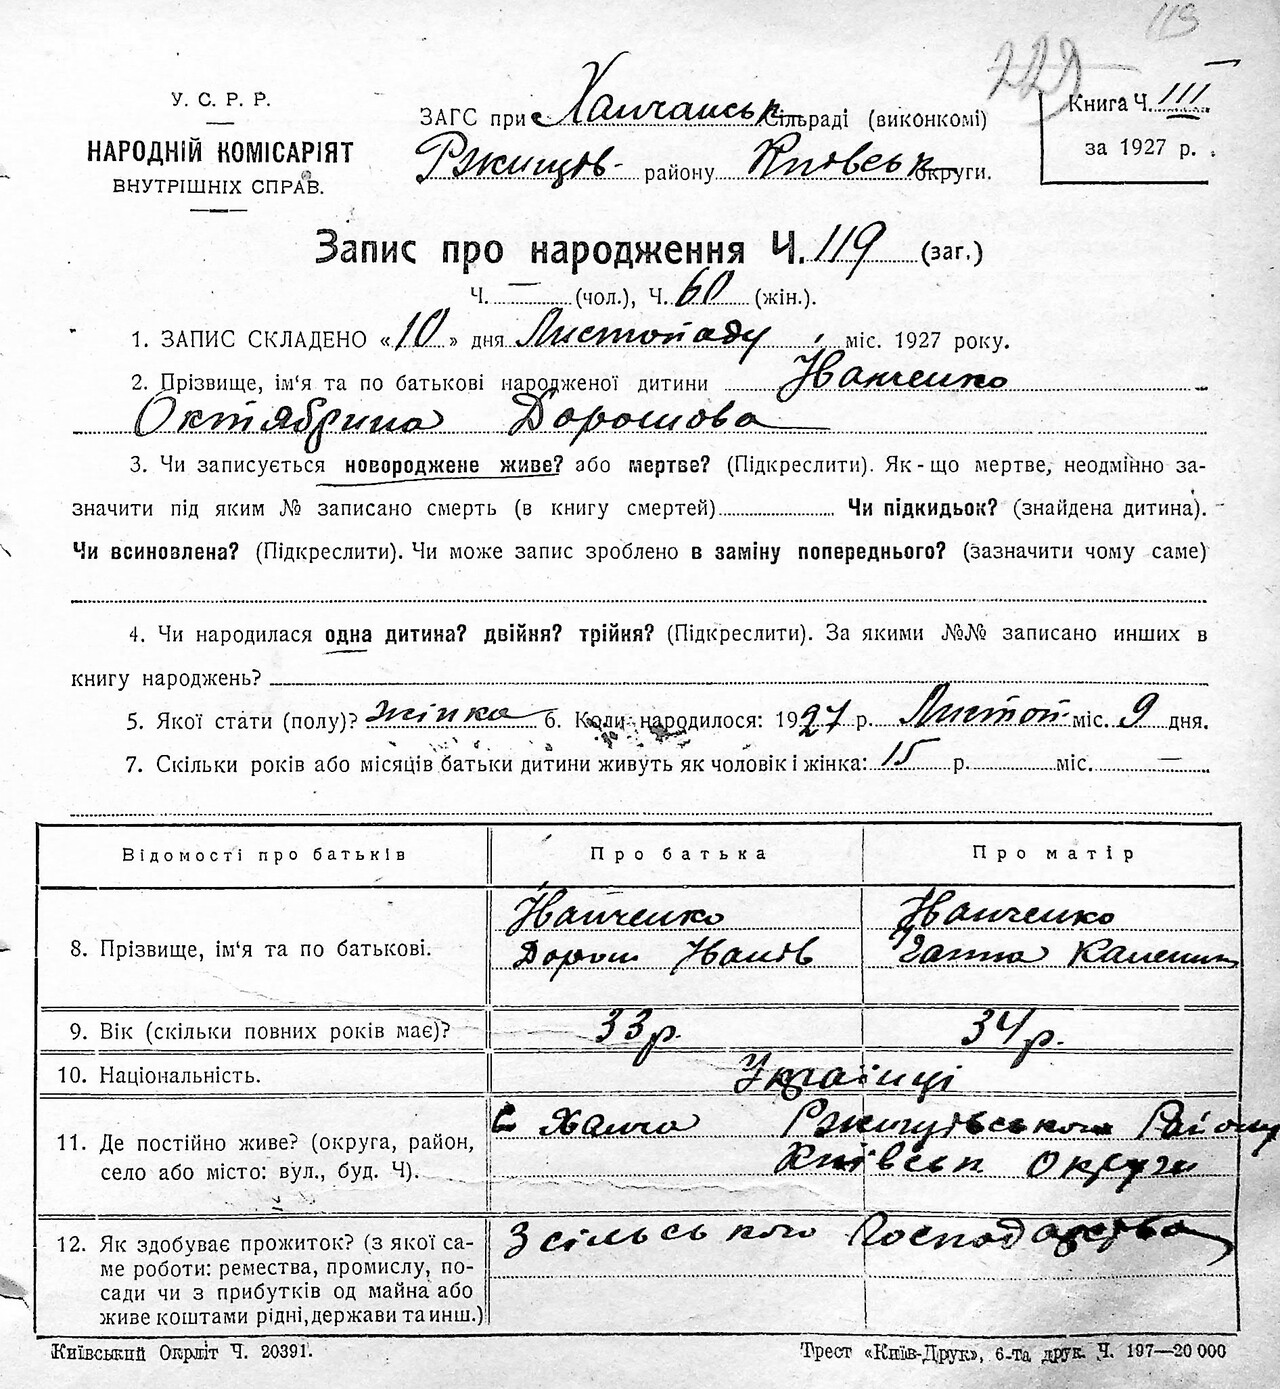 119
У. С. Р. Р.
НАРОДНІЙ КОМІСАРІЯТ
ВНУТРІШНІХ СПРАВ.
ЗАГС при Ханчанськ сільраді (виконкомі)
Ржищів- району Київськ округи.
Книга Ч. III.
за 1927 р.
Запис про народження Ч. 119 (заг.)
Ч. — (чол.), Ч. 60 (жін.).
1. ЗАПИС СКЛАДЕНО «10» дня Листопаду міс. 1927 року.
2. Прізвище, ім'я та по батькові народженої дитини Іванченко
Октябрина Дорошова
3. Чи записується новороджене живе? або мертве? (Підкреслити). Як-що мертве, неодмінно за-
значити під яким № записано смерть (в книгу смертей) Чи підкидьок? (знайдена дитина).
Чи всиновлена? (Підкреслити). Чи може запис зроблено в заміну попереднього? (зазначити чому саме)
4. Чи народилася одна дитина? двійня? трійня? (Підкреслити). За якими №№ записано инших в
книгу народжень?
5. Якої стати (полу)? жінка 6. Коли народилося: 1927 р. Листоп- міс. 9 дня.
7. Скільки років або місяців батьки дитини живуть як чоловік і жінка: 15 р. міс. —
Відомості про батьків Про батька Про матір
8. Прізвище, ім'я та по батькові.
Іванченко
Дорош Іванів
Іванченко
Ганна
9. Вік (скільки повних років має)? 33 р. 34 р.
10. Національність. Українці
11. Де постійно живе? (округа, район,
село або місто: вул., буд. Ч).
С Ханча Ржищівського Району
Київськ Округи
12. Як здобуває прожиток? (з якої са-
ме роботи: ремества, промислу, по-
сади чи з прибутків од майна або
живе коштами рідні, держави та инш.)
З сільського Господарства
Київський Окрліт Ч. 20391.
Трест «Київ-Друк», 6-та друк. Ч. 197—20 000